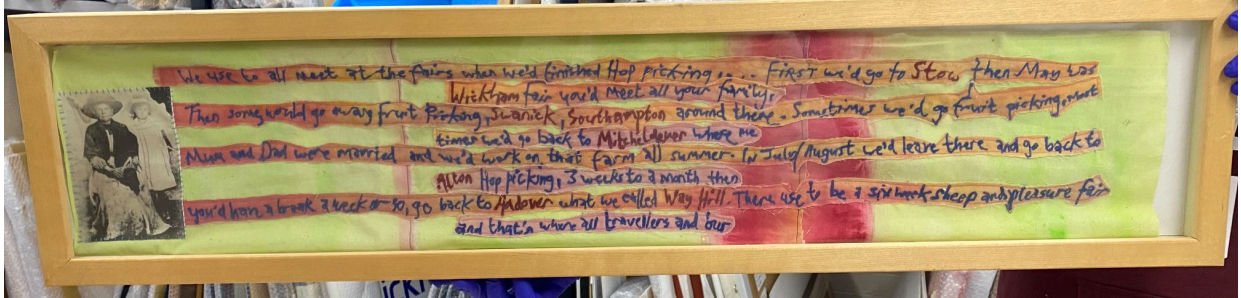 We use to all meet at the fairs when we'd finished Hop picking.... FIRST we'd go to Stow then May was
Wickham fair you'd meet all your family.
Then some would go away fruit Picking, Swanick, Southampton around there. Sometimes we'd go fruit picking, most
times we'd go back to Mitcheldever where me
Mum and Dad were married and we'd work on that farm all summer. IN July/August we'd leave there and go back to
Alton Hop picking, 3 weeks to a month then
you'd have a break a week or so, go back to Andover what we called Way Hill. There use to be a six week sheep and pleasure fair
and that'n where all travellers and our